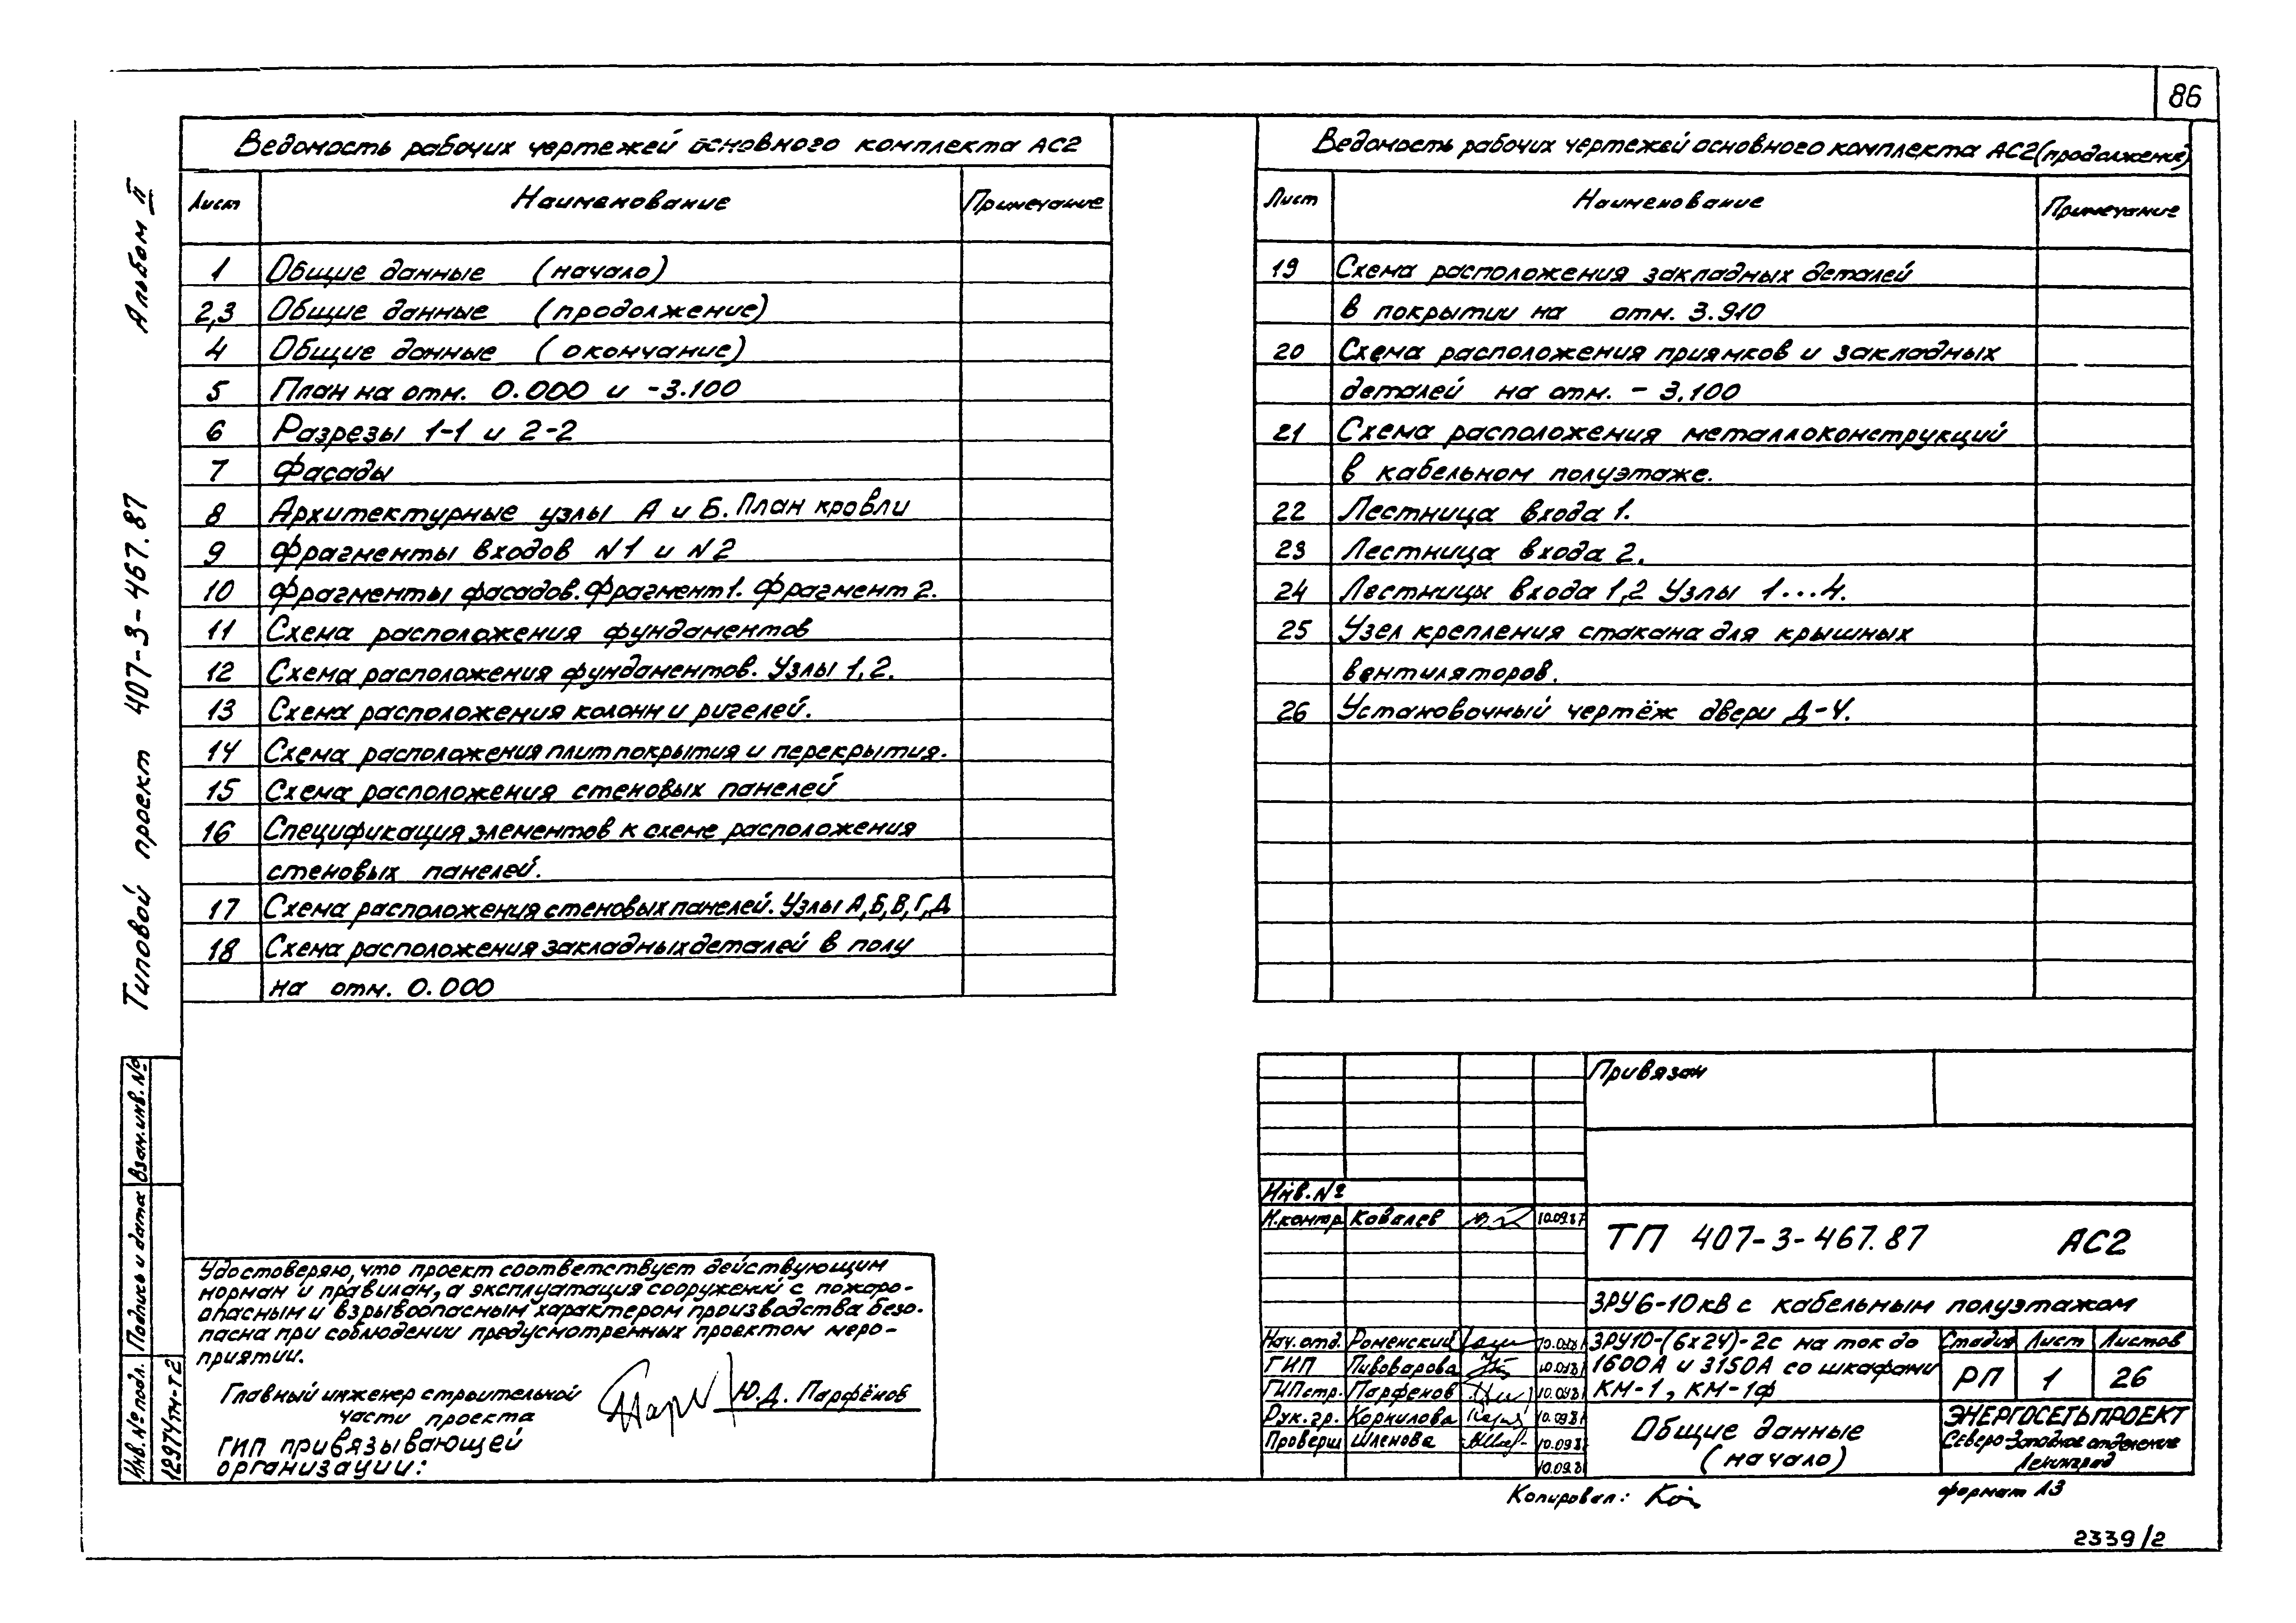 86
Ведомость рабочих чертежей основного комплекта АС2
Лист Наименование Примечание
1 Общие данные (начало)
2,3 Общие данные (продолжение)
4 Общие данные (окончание)
5 План на отм. 0.000 и -3.100
6 Разрезы 1-1 и 2-2
7 Фасады
8 Архитектурные узлы А и Б. План кровли
9 Фрагменты входов N1 и N2
10 Фрагменты фасадов. Фрагмент 1. Фрагмент 2.
11 Схема расположения фундаментов
12 Схема расположения фундаментов. Узлы 1,2.
13 Схема расположения колонн и ригелей.
14 Схема расположения плит покрытия и перекрытия.
15 Схема расположения стеновых панелей
16 Спецификация элементов к схеме расположения
стеновых панелей.
17 Схема расположения стеновых панелей. Узлы А,Б,В,Г,Д
18 Схема расположения закладных деталей в полу
на отм. 0.000
Ведомость рабочих чертежей основного комплекта АС2 (продолжение)
Лист Наименование Примечание
19 Схема расположения закладных деталей
в покрытии на отм. 3.910
20 Схема расположения приямков и закладных
деталей на отм. - 3.100
21 Схема расположения металлоконструкций
в кабельном полуэтаже.
22 Лестница входа 1.
23 Лестница входа 2.
24 Лестницы входа 1,2 Узлы 1...4.
25 Узел крепления стакана для крышных
вентиляторов.
26 Установочный чертёж двери Д-4.
Альбом II
Типовой проект 407-3-467.87
Взам.инв.№
Подпись и дата
Инв.№ подл.
12974тм-т2
Удостоверяю, что проект соответствует действующим
нормам и правилам, а эксплуатация сооружений с пожаро-
опасным и взрывоопасным характером производства безо-
пасна при соблюдении предусмотренных проектом меро-
приятии.
Главный инженер строительной
части проекта
Ю.Д. Парфёнов
ГИП привязывающей
организации:
Привязан
Инв.№
Н.контр. Ковалев 10.09.87
ТП 407-3-467.87 АС2
ЗРУ 6-10кВ с кабельным полуэтажом
Нач.отд. Роменский 10.09.87
ГИП Пивоварова 10.09.87
ГИПстр. Парфенов 10.09.87
Рук.гр. Корнилова 10.09.87
Проверил Шленова 10.09.87
10.09.87
ЗРУ10-(6х24)-2с на ток до
1600А и 3150А со шкафами
КМ-1, КМ-1ф
Стадия Лист Листов
РП 1 26
Общие данные
(начало)
ЭНЕРГОСЕТЬПРОЕКТ
Северо-Западное отделение
Ленинград
Копировал:
формат А3
2339/2